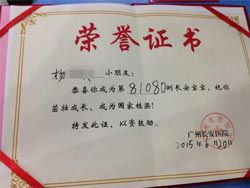 荣誉证书
杨 小朋友:
恭喜你成为第81080例长安宝宝,祝你
茁壮成长,成为国家栋梁!
特发此证,以资鼓励。
广州长安医院
2015年6月20日